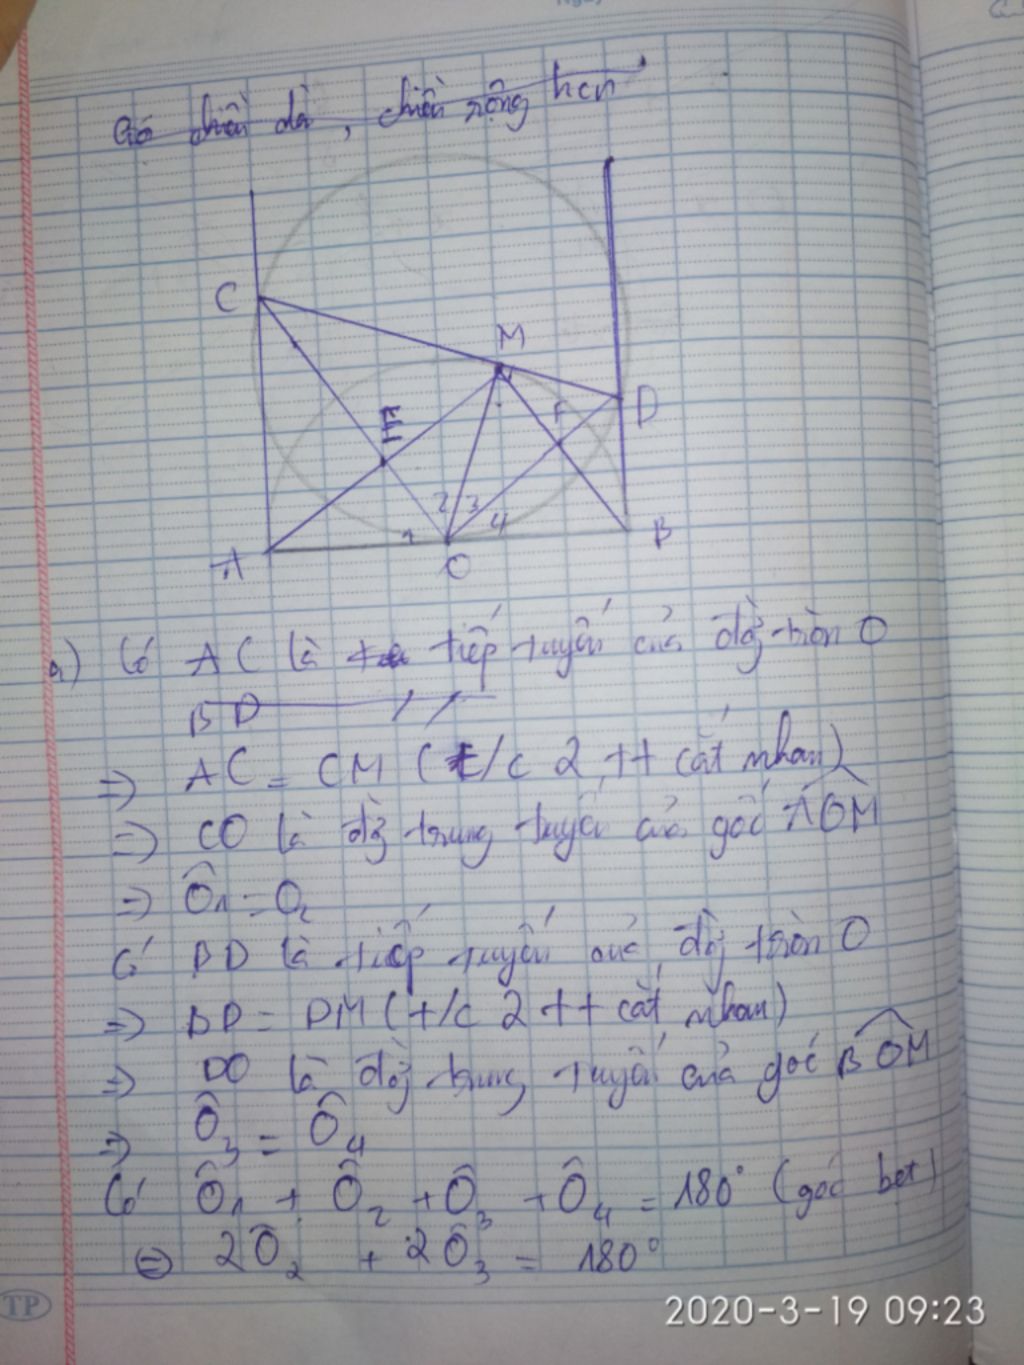 Có chiều dà , chiều rộng hcn
C
M
E
F
D
2 3
1 4
A
O
B
a) Có AC là tiếp tuyến của đg tròn O
BD
=> AC = CM (t/c 2 tt cắt nhau)
=> CO là đg trung tuyến của góc AOM
=> Ô1 = O2
Có BD là tiếp tuyến của đg tròn O
=> BD = DM (t/c 2 tt cắt nhau)
=> DO là đg trung tuyến của góc BOM
=> Ô3 = Ô4
Có Ô1 + Ô2 + Ô3 + Ô4 = 180° (góc bẹt)
<=> 2Ô2 + 2Ô3 = 180°
TP
2020-3-19 09:23